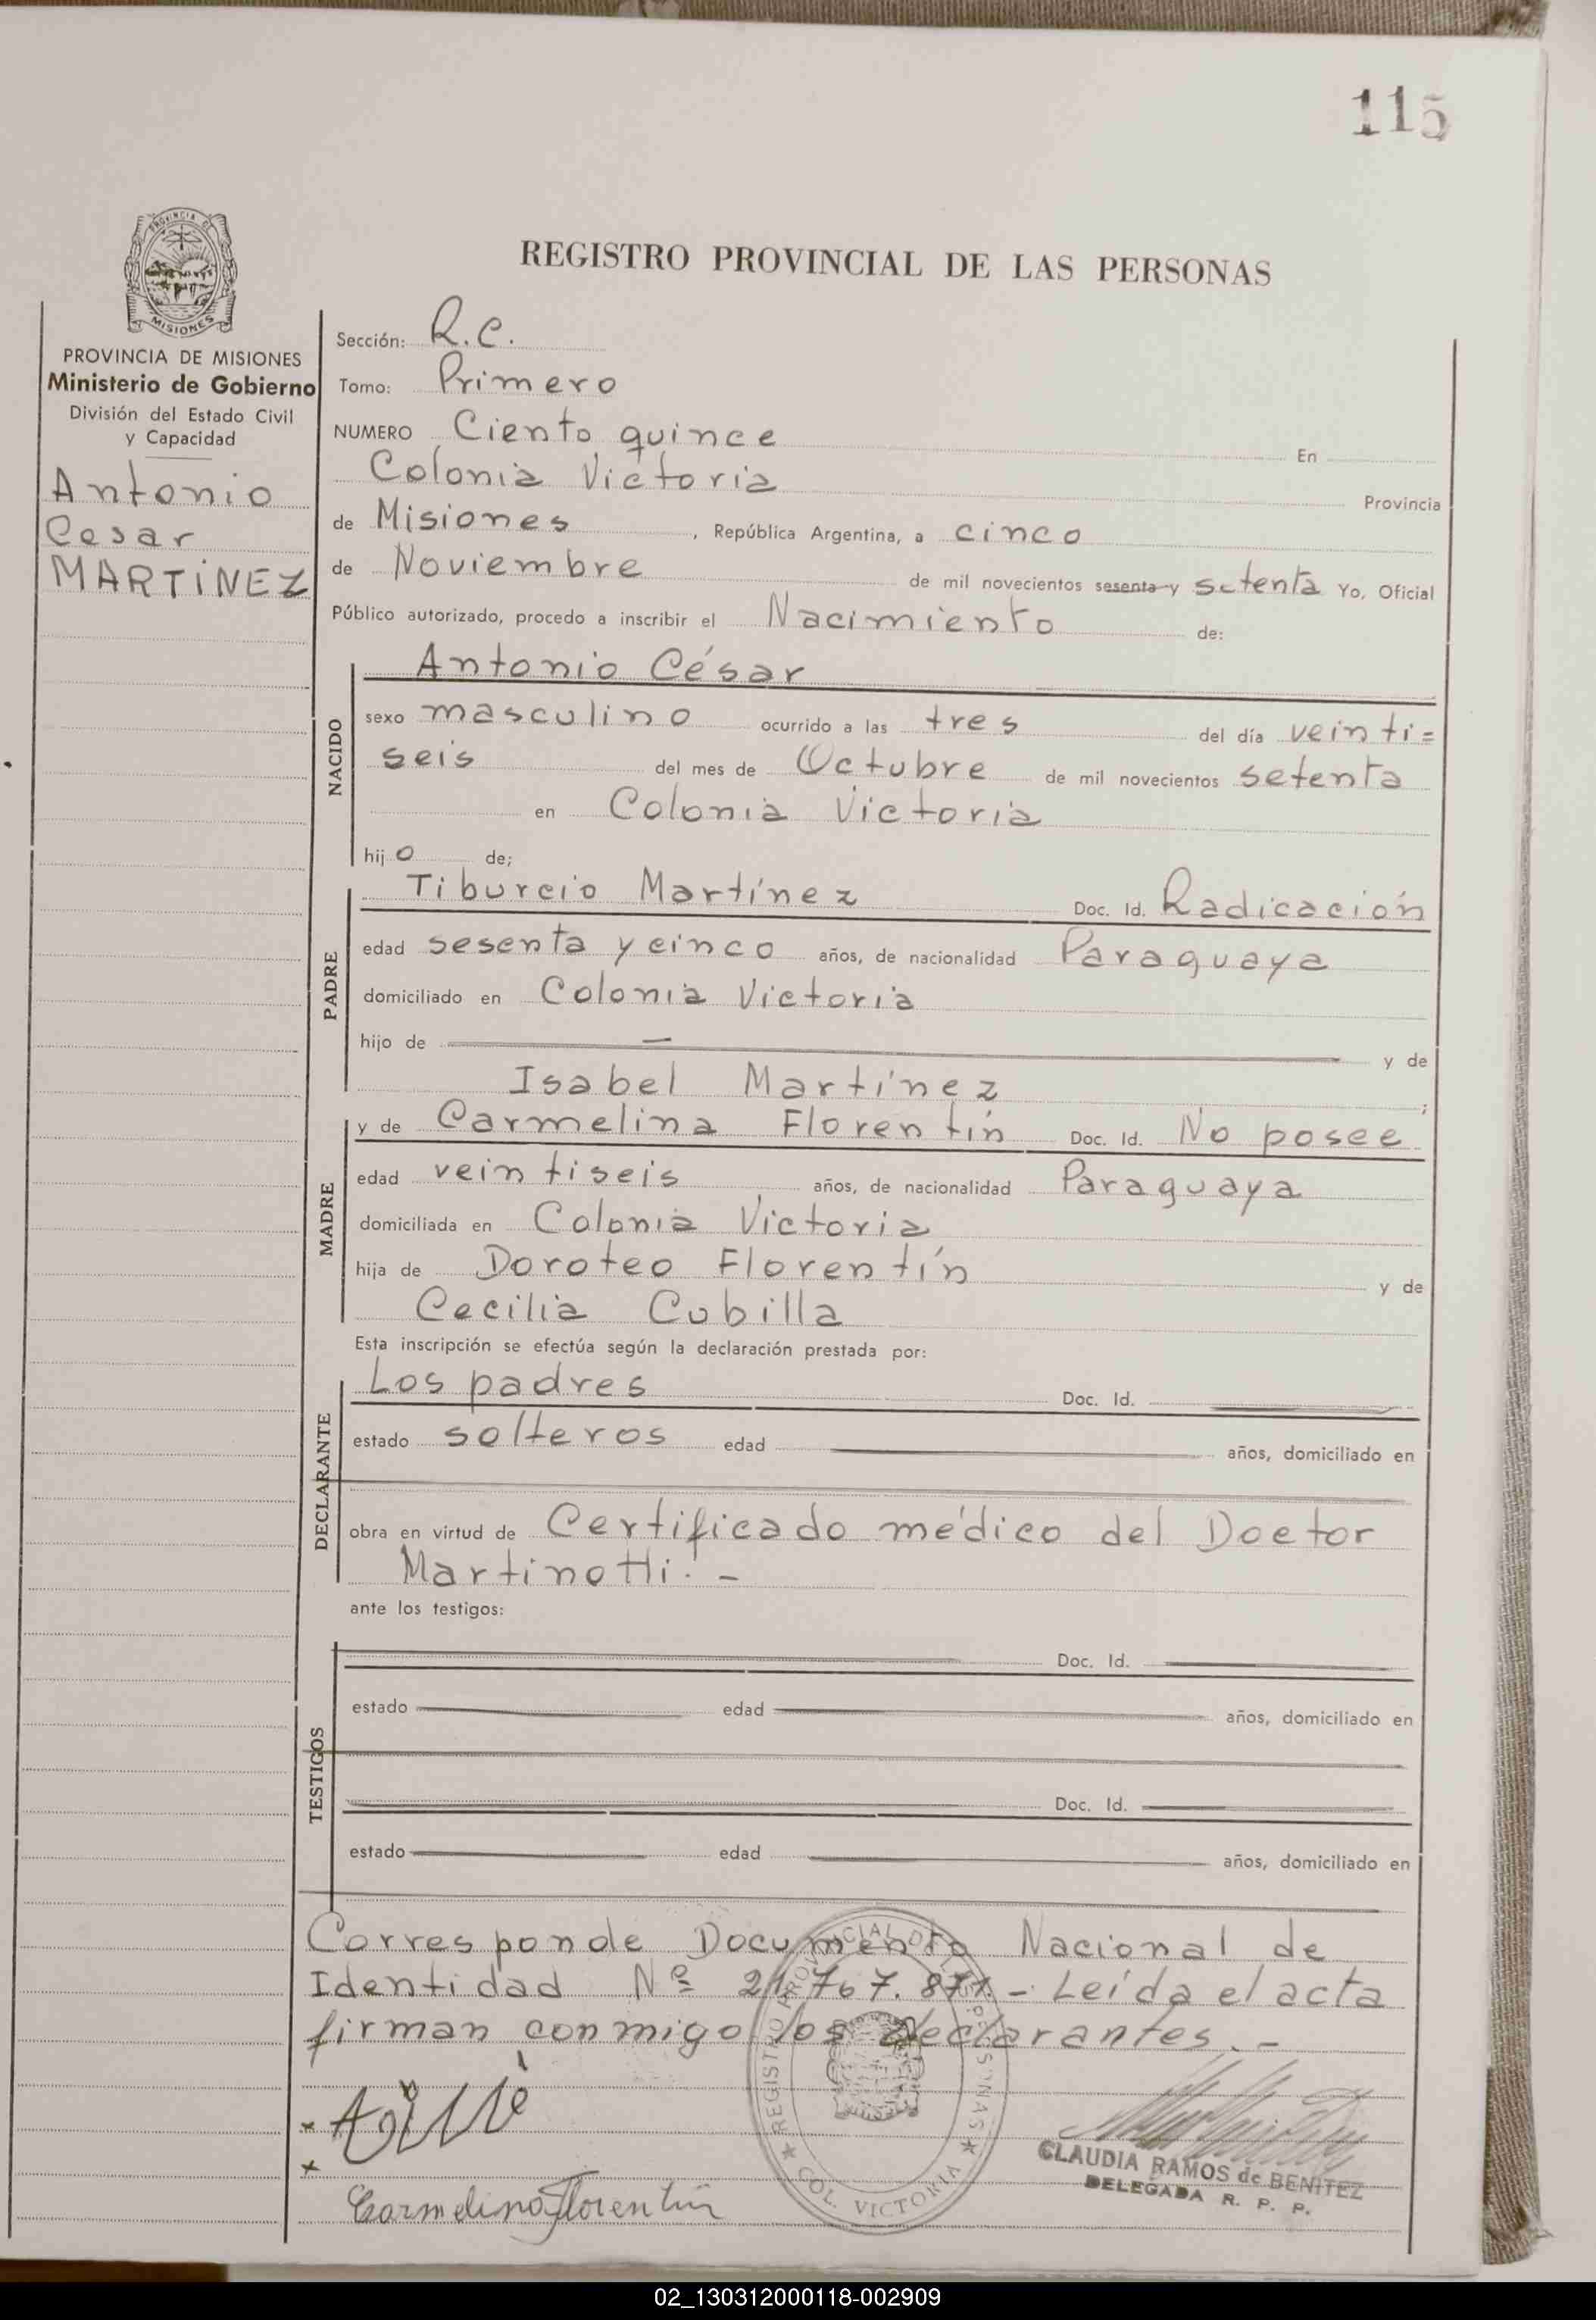 115
PROVINCIA DE MISIONES
REGISTRO PROVINCIAL DE LAS PERSONAS
PROVINCIA DE MISIONES
Ministerio de Gobierno
División del Estado Civil
y Capacidad
Antonio
Cesar
MARTíNEZ
Sección: R.C.
Tomo: Primero
NUMERO Ciento quince En
Colonia Victoria Provincia
de Misiones, República Argentina, a cinco
de Noviembre de mil novecientos sesenta y setenta Yo, Oficial
Público autorizado, procedo a inscribir el Nacimiento de:
Antonio César
NACIDO
sexo masculino ocurrido a las tres del día veinti=
seis del mes de Octubre de mil novecientos setenta
en Colonia Victoria
hijo de;
PADRE
Tiburcio Martínez Doc. Id. Radicación
edad sesenta y cinco años, de nacionalidad Paraguaya
domiciliado en Colonia Victoria
hijo de — y de
Isabel Martínez ;
MADRE
y de Carmelina Florentín Doc. Id. No posee
edad veintiseis años, de nacionalidad Paraguaya
domiciliada en Colonia Victoria
hija de Doroteo Florentín y de
Cecilia Cubilla
Esta inscripción se efectúa según la declaración prestada por:
DECLARANTE
Los padres Doc. Id.
estado solteros edad años, domiciliado en
obra en virtud de Certificado médico del Doctor
Martinotti. -
ante los testigos:
TESTIGOS
Doc. Id.
estado edad años, domiciliado en
Doc. Id.
estado edad años, domiciliado en
Corresponde Documento Nacional de
Identidad Nº 21.767.871. - Leída el acta
firman conmigo los declarantes. -
REGISTRO PROVINCIAL DE LAS PERSONAS
COL. VICTORIA
CLAUDIA RAMOS de BENITEZ
DELEGADA R. P. P.
Carmelina Florentin
02_130312000118-002909